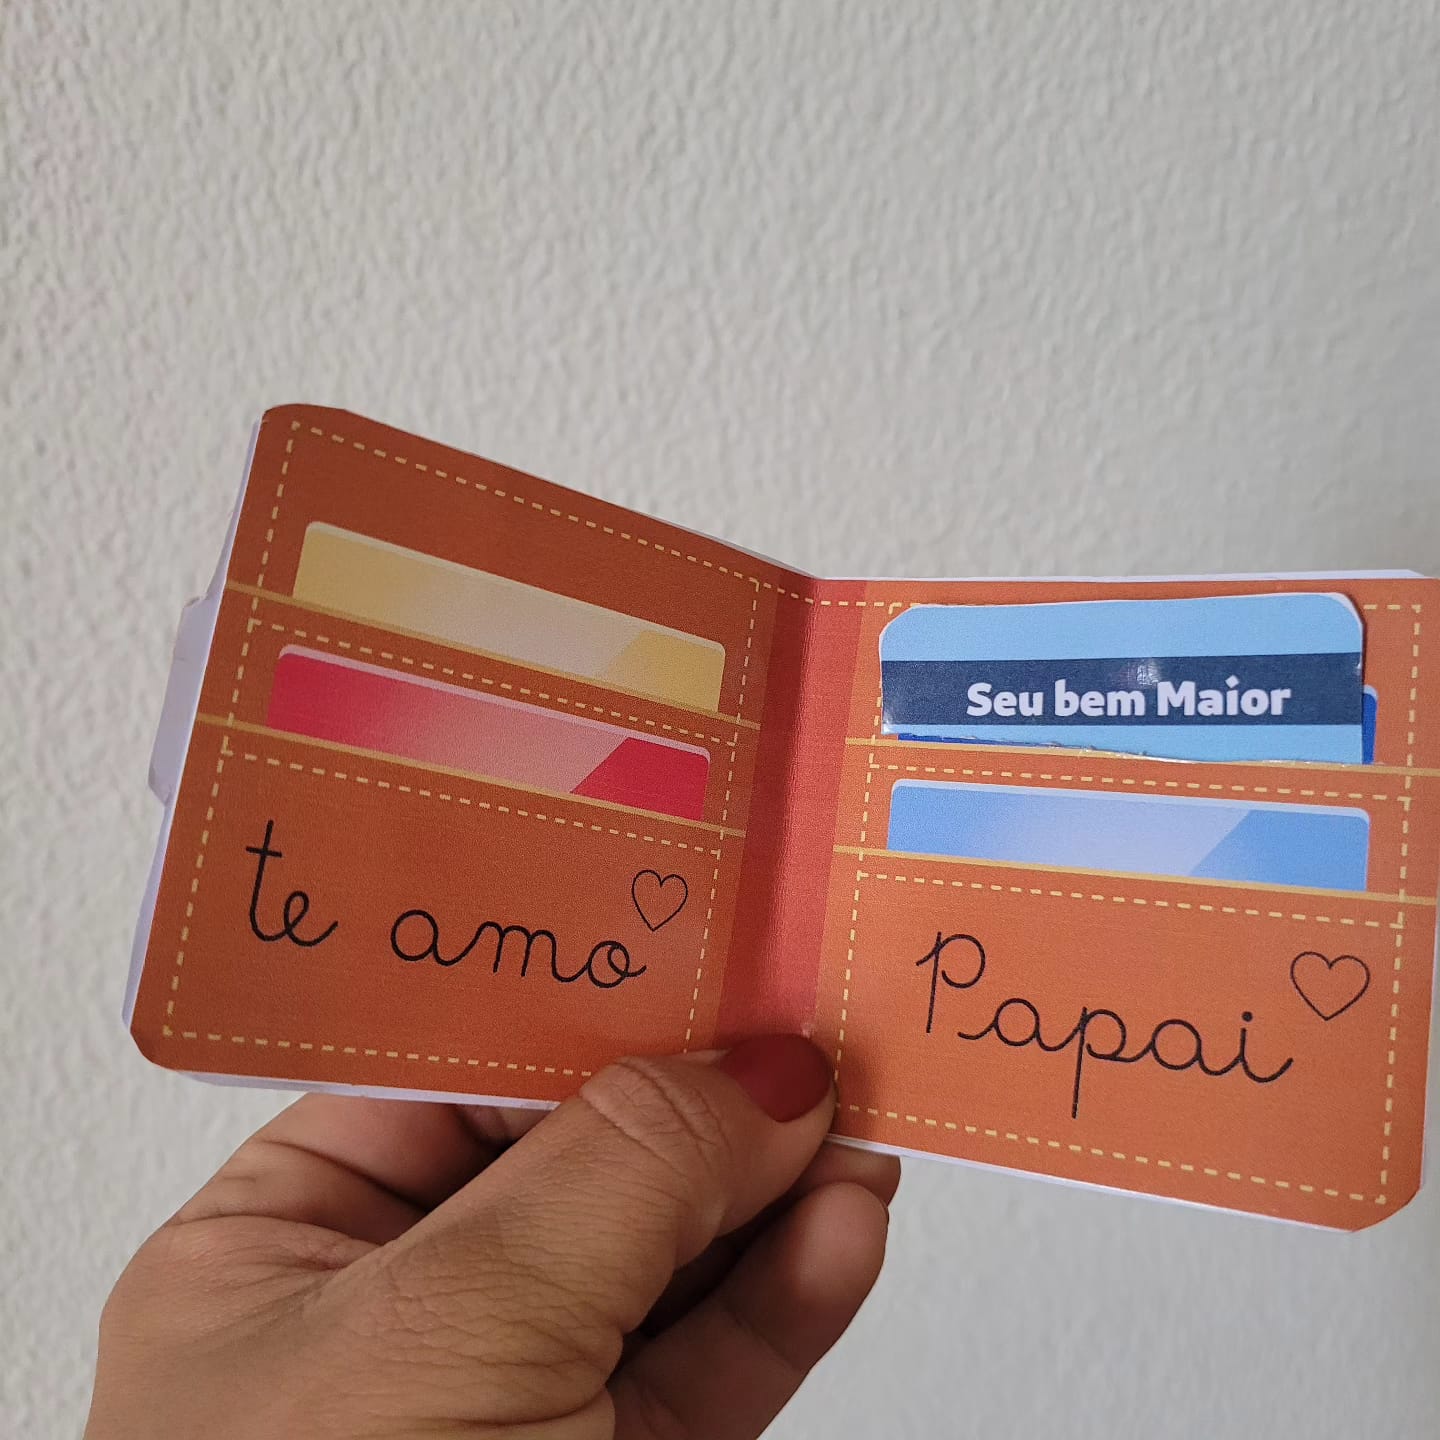 Seu bem Maior
te amo
Papai